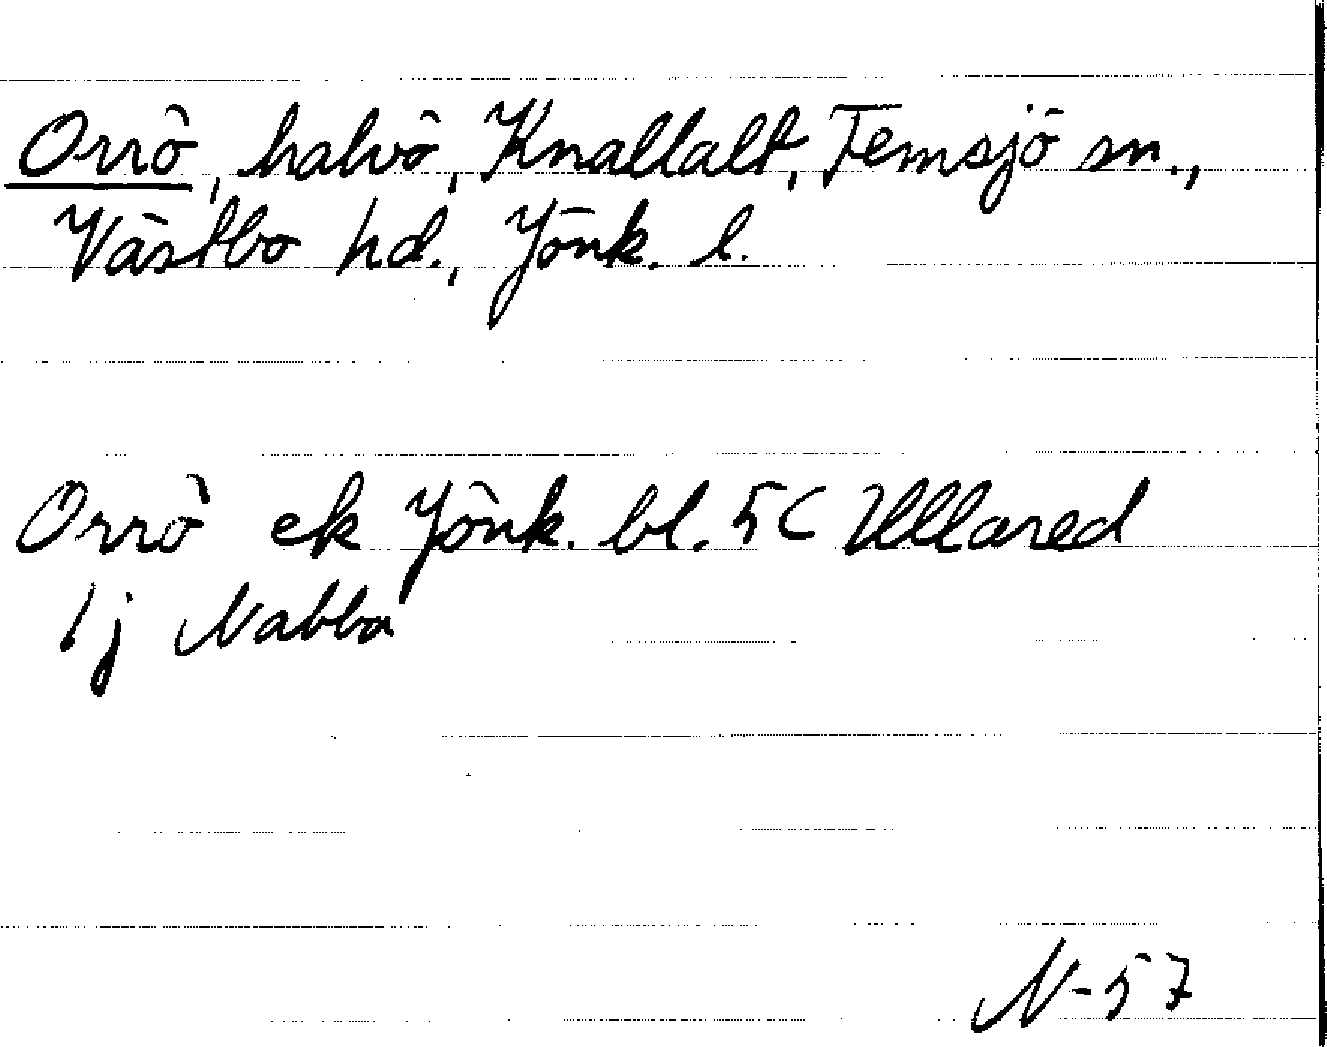 Orrö, halvö, Knallalt, Femsjö sn.,
Västbo hd., Jönk. l.
Orrö ek Jönk. bl. 5C Ullared
1j Nabba
N-57